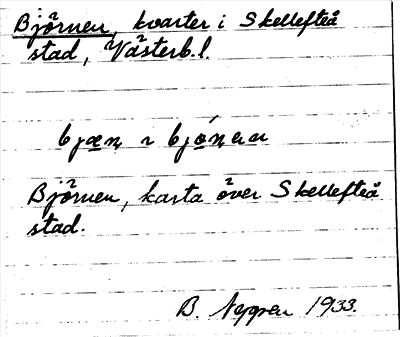 Björnen, kvarter i Skellefteå
stad, Västerb.l.
bjæṇ ~ bjó̤ṇen
Björnen, karta över Skellefteå
stad.
B. Nygren 1933.